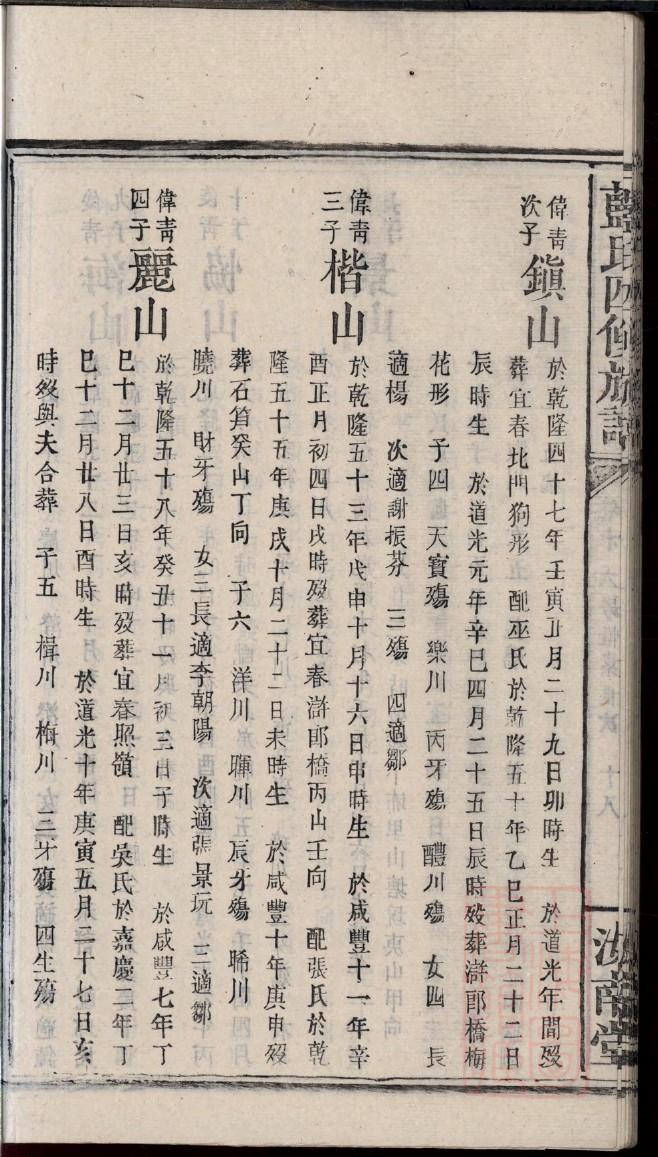 藍氏四修族譜
汝南堂
偉青次子 鎮山
於乾隆四十七年壬寅正月二十九日卯時生 於道光年間歿
葬宜春北門狗形 配巫氏於乾隆五十年乙巳正月二十二日
辰時生 於道光元年辛巳四月二十五日辰時歿葬滸郎橋梅
花形 子四 天寶殤 樂川 丙牙殤 醴川殤 女四 長
適楊 次適謝振芬 三殤 四適鄒
偉青三子 楷山
於乾隆五十三年戊申十月十六日申時生 於咸豐十一年辛
酉正月初四日戌時歿葬宜春滸郎橋丙山壬向 配張氏於乾
隆五十五年庚戌十月二十二日未時生 於咸豐十年庚申歿
葬石筲癸山丁向 子六 洋川 暉川 辰牙殤 晞川
曉川 財牙殤 女三長適李朝陽 次適張景玩 三適鄒
偉青四子 麗山
於乾隆五十八年癸丑十一月初三日子時生 於咸豐七年丁
巳十二月廿三日亥時歿葬宜春照嶺 配吳氏於嘉慶二年丁
巳十二月廿八日酉時生 於道光十年庚寅五月二十七日亥
時歿與夫合葬 子五 楫川 梅川 三牙殤 四生殤